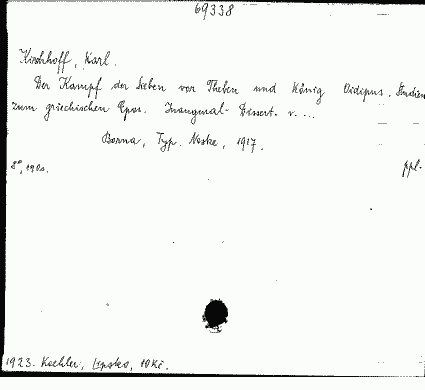 69338
Kirchhoff, Karl.
Der Kampf der Sieben vor Theben und König Oidipus. Studien
zum griechischen Epos. Inaugural-Dissert. v. ...
Borna, Typ. Noske, 1917.
8°,
ppl.
1923. Koehler, Lipsko, 10Kč.